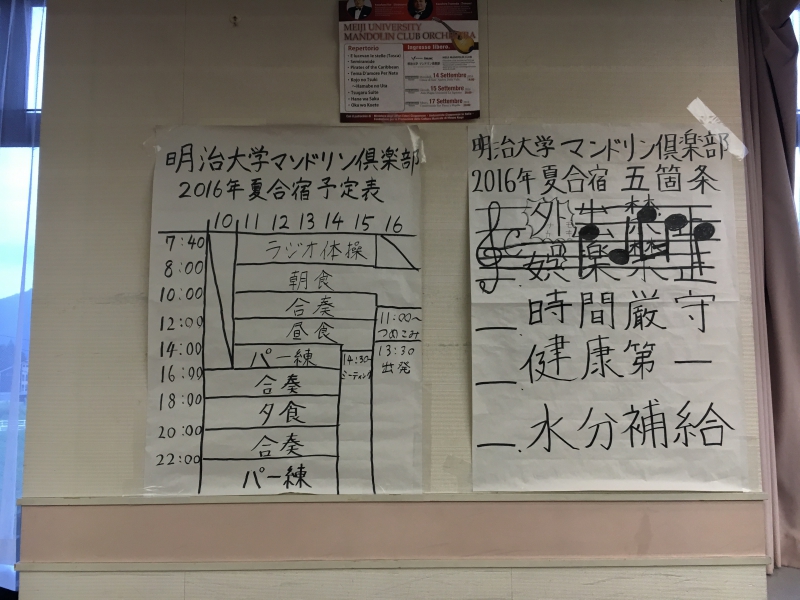 MEIJI UNIVERSITY
MANDOLIN CLUB ORCHESTRA
Repertorio
Ingresso libero.
14 Settembre
15 Settembre
17 Settembre
明治大学マンドリン倶楽部
2016年夏合宿予定表
10 11 12 13 14 15 16
7:40 ラジオ体操
8:00 朝食
10:00 合奏
12:00 昼食
14:00 パー練
16:00 合奏
18:00 夕食
20:00 合奏
22:00 パー練
14:30~
ミーティング
11:00~
つめこみ
13:30
出発
明治大学マンドリン倶楽部
2016年夏合宿 五箇条
外出禁止
娯楽禁止
一、時間厳守
一、健康第一
一、水分補給